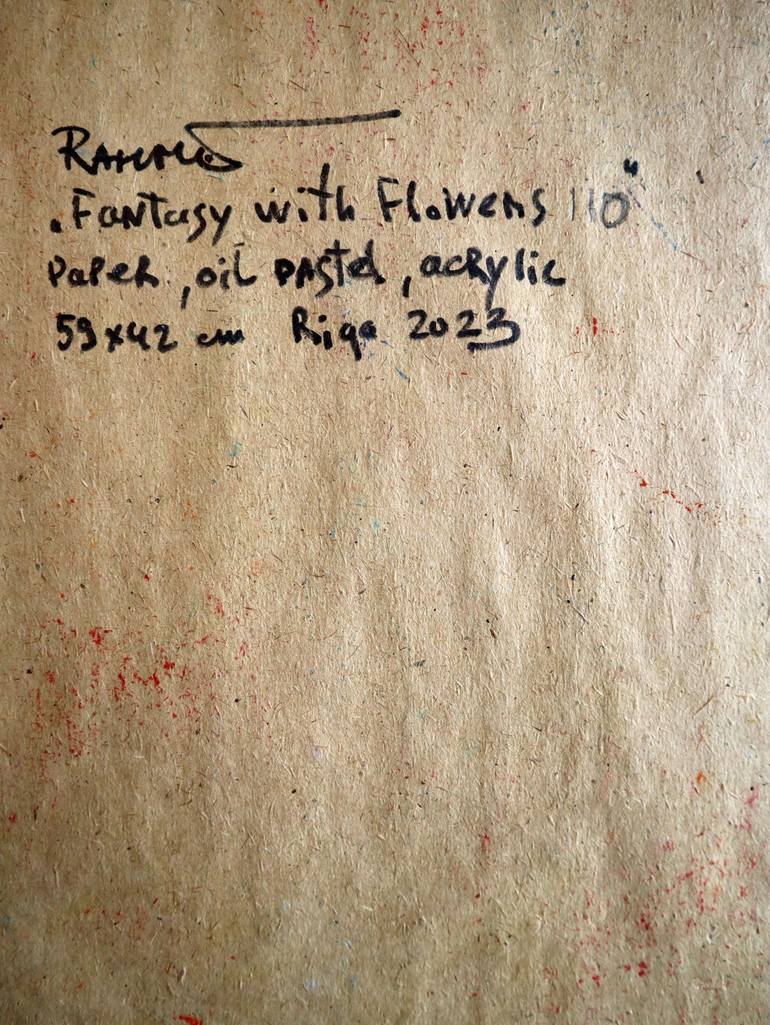 .Fantasy with Flowers 110"
Paper, oil pastel, acrylic
59x42 cm Riga 2023